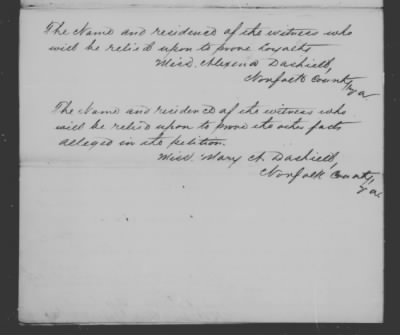 The Name and residence of the witness who
will be relied upon to prove loyalty
Miss. Alexina Dashiell,
Norfolk County
Va
The Name and residence of the witness who
will be relied upon to prove the other facts
alleged in the petition.
Miss. Mary A. Dashiell,
Norfolk County
Va